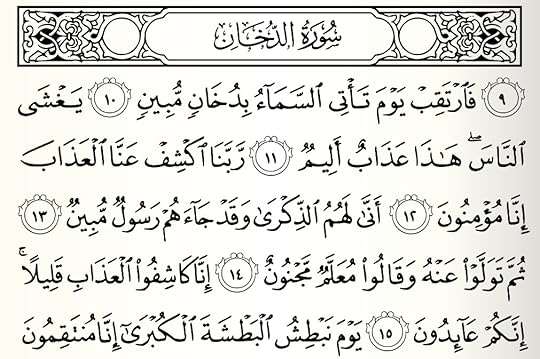 سُورَةُ الدُّخَانِ
٩ فَٱرۡتَقِبۡ يَوۡمَ تَأۡتِى ٱلسَّمَآءُ بِدُخَانٖ مُّبِينٖ ١٠ يَغۡشَى
ٱلنَّاسَۖ هَٰذَا عَذَابٌ أَلِيمٞ ١١ رَّبَّنَا ٱكۡشِفۡ عَنَّا ٱلۡعَذَابَ
إِنَّا مُؤۡمِنُونَ ١٢ أَنَّىٰ لَهُمُ ٱلذِّكۡرَىٰ وَقَدۡ جَآءَهُمۡ رَسُولٞ مُّبِينٞ ١٣
ثُمَّ تَوَلَّوۡاْ عَنۡهُ وَقَالُواْ مُعَلَّمٞ مَّجۡنُونٌ ١٤ إِنَّا كَاشِفُواْ ٱلۡعَذَابِ قَلِيلًاۚ
إِنَّكُمۡ عَآئِدُونَ ١٥ يَوۡمَ نَبۡطِشُ ٱلۡبَطۡشَةَ ٱلۡكُبۡرَىٰٓ إِنَّا مُنتَقِمُونَ